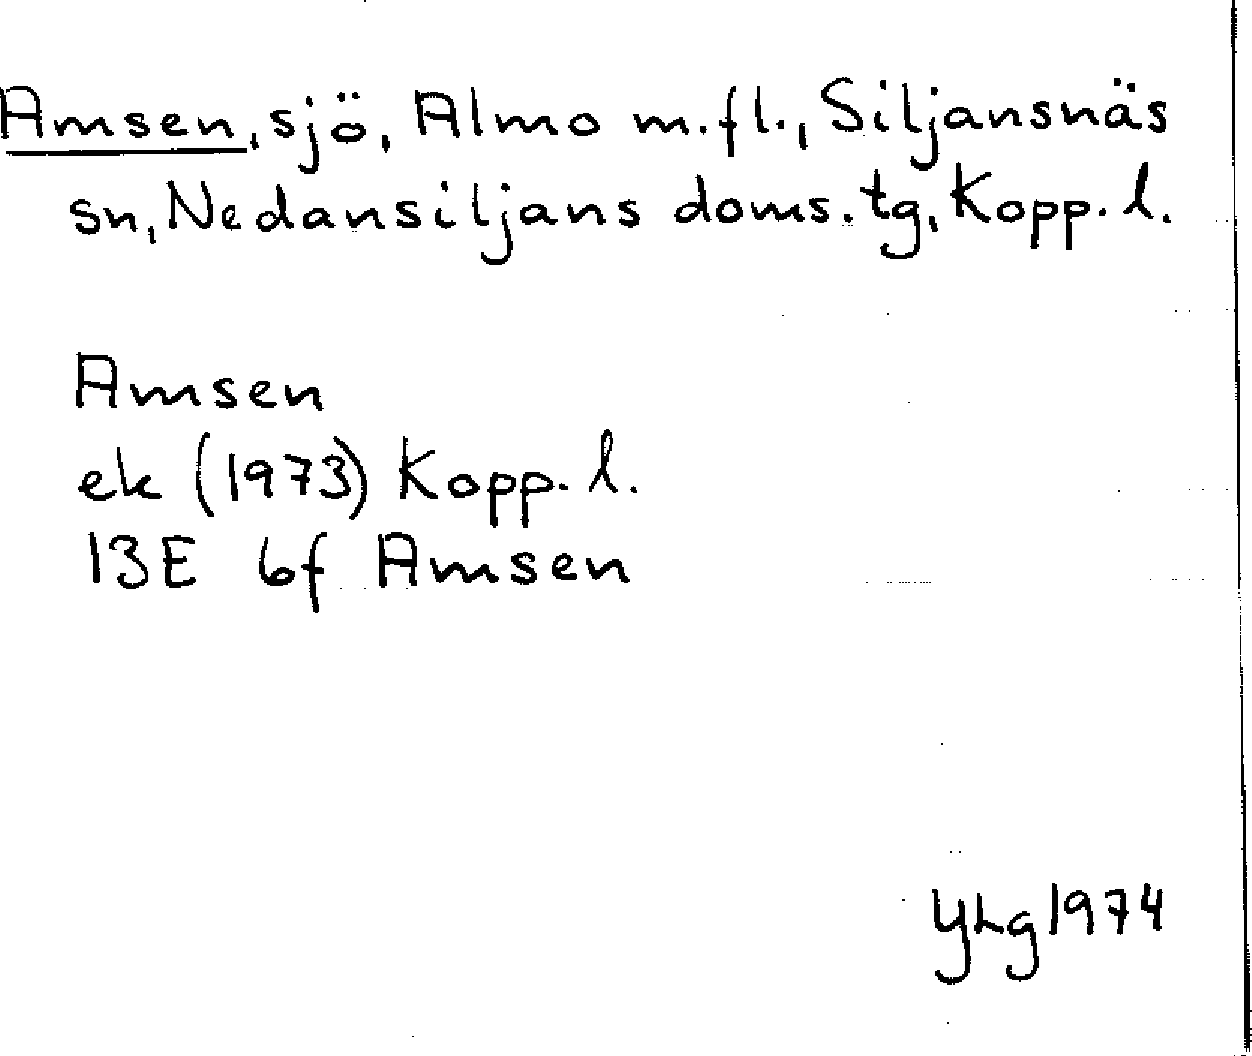 Amsen, sjö, Almo m.fl., Siljansnäs
sn, Nedansiljans doms.tg, Kopp. l.
Amsen
ek (1973) Kopp. l.
13E 6f Amsen
YLg 1974